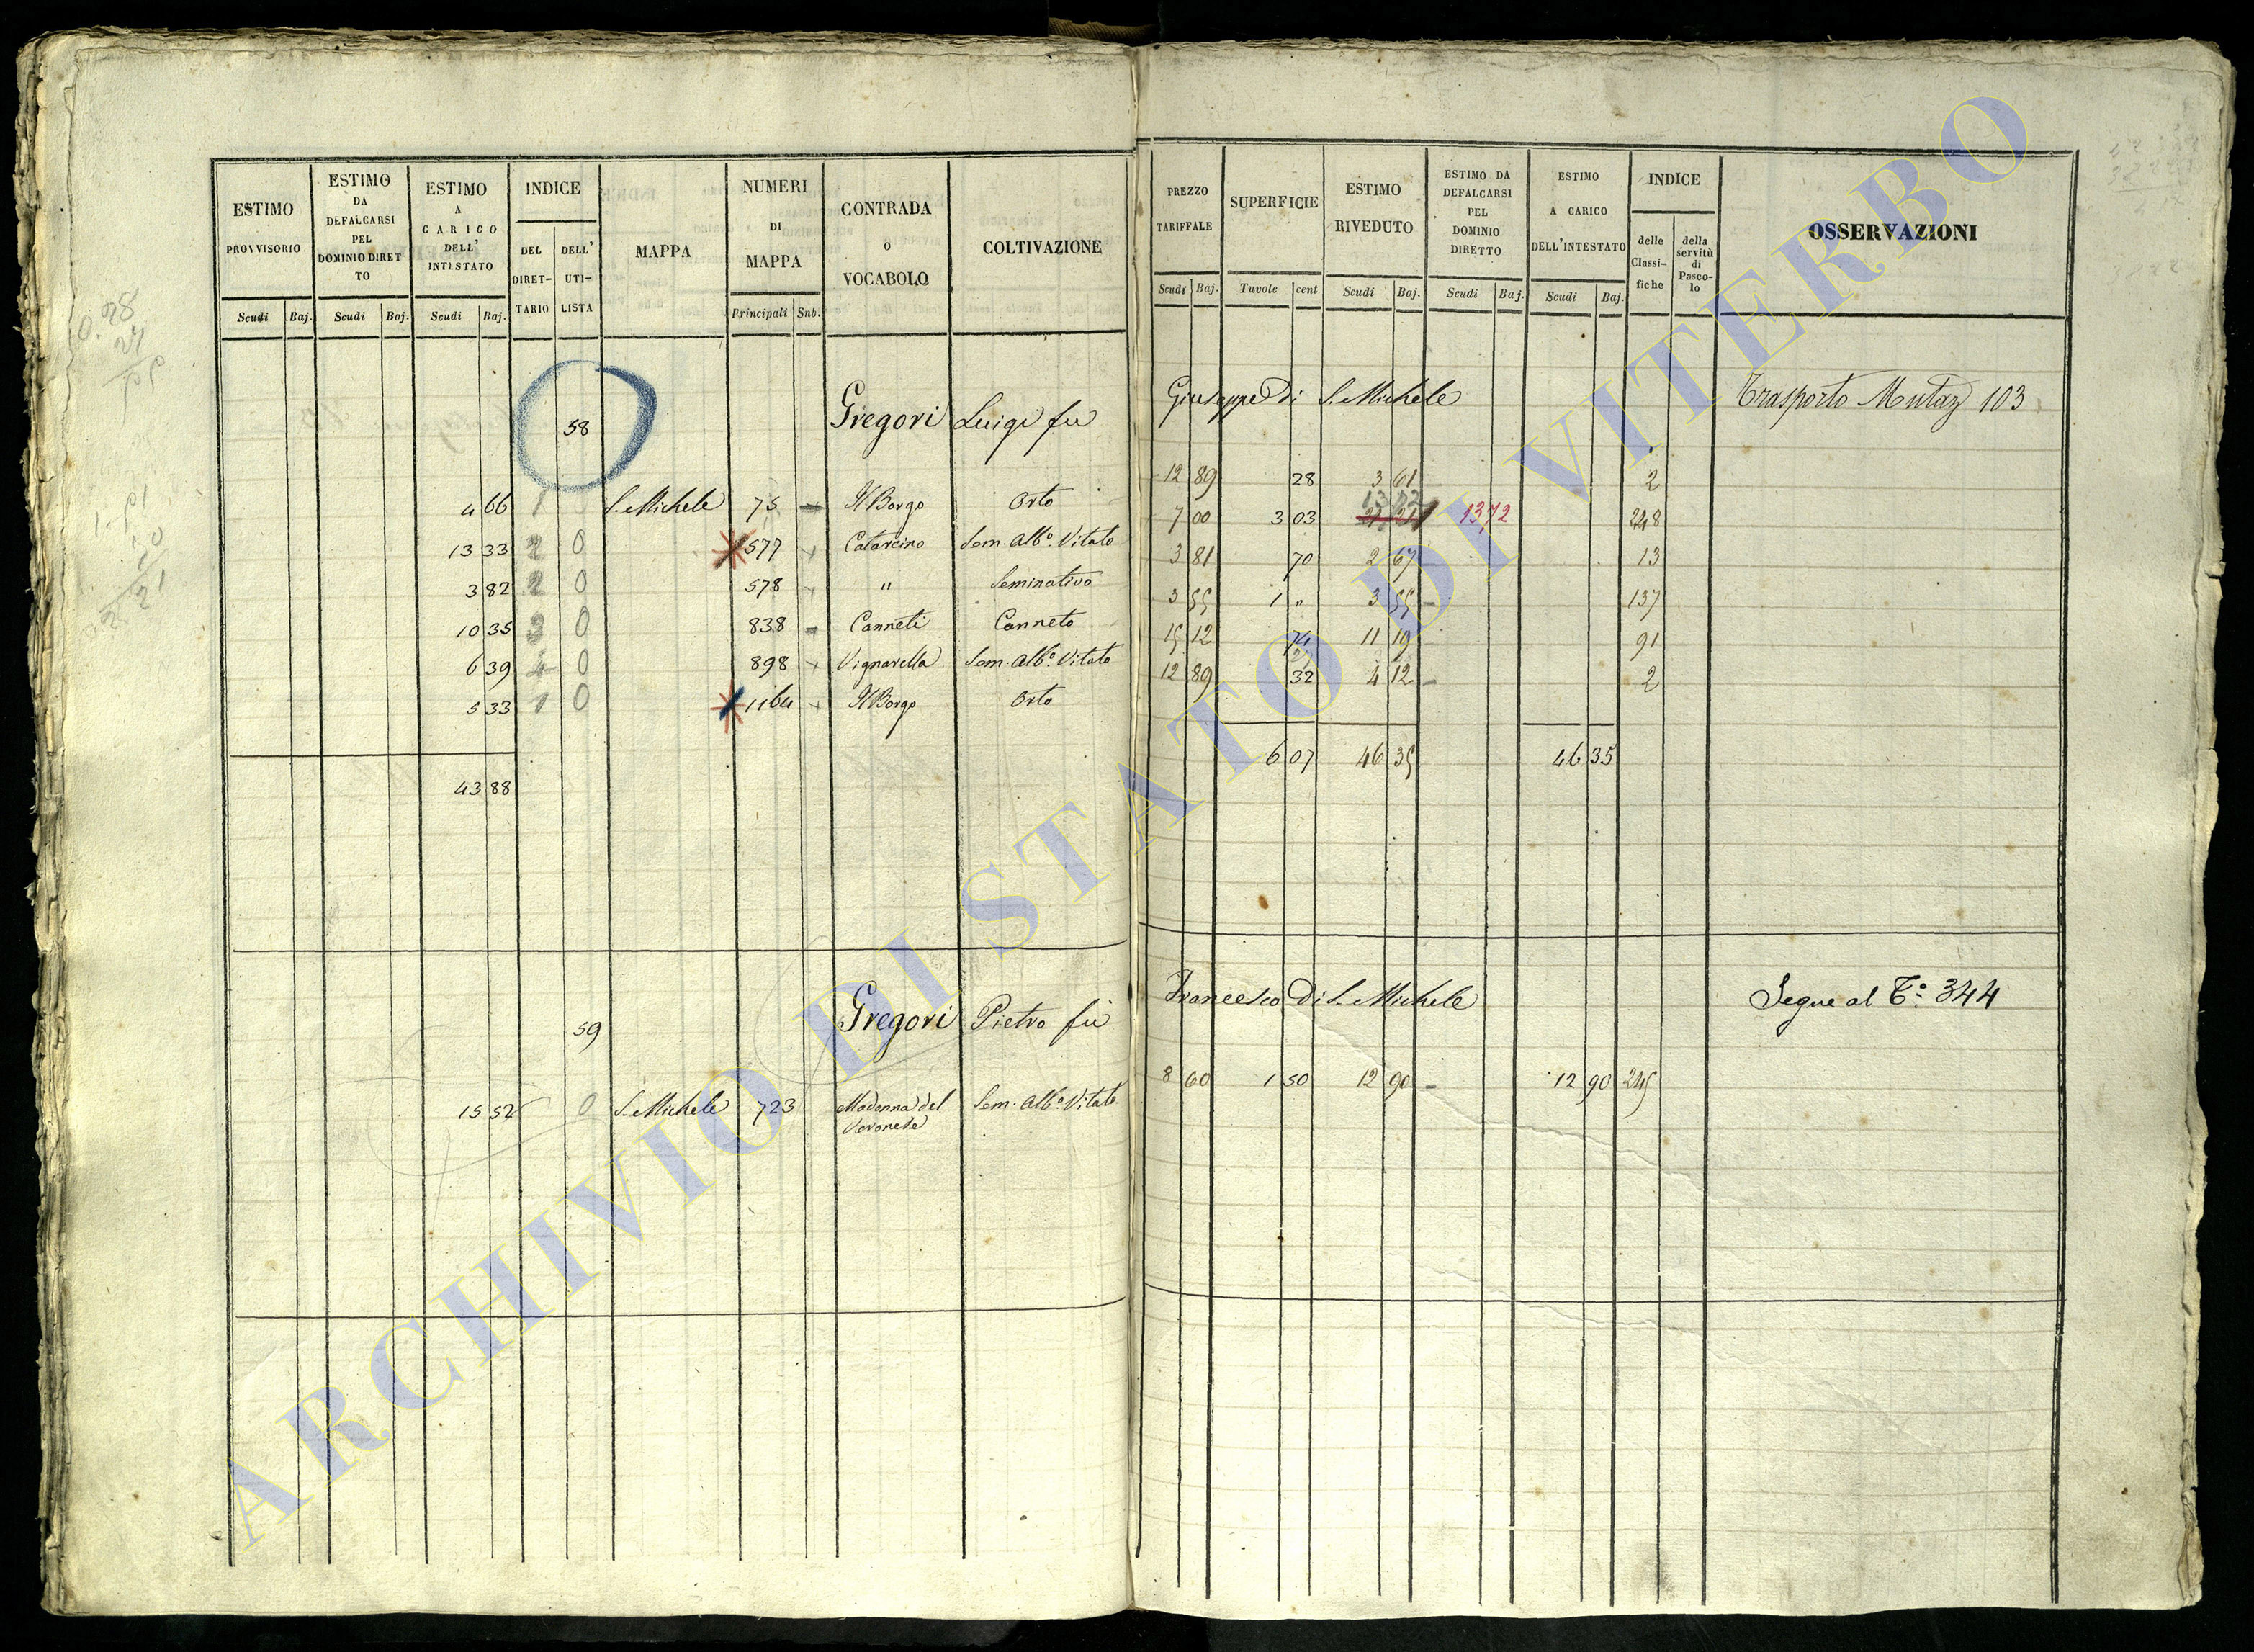 ESTIMO PROVVISORIO
Scudi Baj.
ESTIMO DA DEFALCARSI PEL DOMINIO DIRETTO
Scudi Baj.
ESTIMO A CARICO DELL' INTESTATO
Scudi Baj.
INDICE
DEL DIRETTARIO
DELL' UTILISTA
MAPPA
NUMERI DI MAPPA
Principali Sub.
CONTRADA O VOCABOLO
COLTIVAZIONE
PREZZO TARIFFALE
Scudi Baj.
SUPERFICIE
Tavole cent
ESTIMO RIVEDUTO
Scudi Baj.
ESTIMO DA DEFALCARSI PEL DOMINIO DIRETTO
Scudi Baj.
ESTIMO A CARICO DELL'INTESTATO
Scudi Baj.
INDICE
delle Classifiche
della servitù di Pascolo
OSSERVAZIONI
58 Gregori Luigi fu Giuseppe di S. Michele Trasporto Mutaz 103
4 66 1 S. Michele 75 Il Borgo Orto 12 89 28 3 61 2
13 33 2 0 577 Catarcino Sem. Alb.o Vitato 7 00 3 03 21 21 13 72 248
3 82 2 0 578 " Seminativo 3 81 70 2 67 13
10 35 3 0 838 Canneti Canneto 3 55 1 " 3 55 137
6 39 4 0 898 Vignarella Sem. Alb.o Vitato 15 12 74 11 19 91
5 33 1 0 1164 Il Borgo Orto 12 89 32 4 12 2
43 88 6 07 46 35 46 35
59 Gregori Pietro fu Francesco di S. Michele Segue al T.o 344
15 52 0 S. Michele 723 Madonna del Veronese Sem. Alb.o Vitato 8 60 1 50 12 90 12 90 245
ARCHIVIO DI STATO DI VITERBO